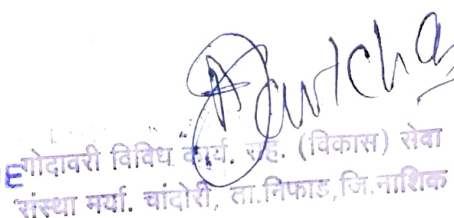 गोदावरी विविध कार्य. सह. (विकास) सेवा
संस्था मर्या. चांदोरी, ता.निफाड,जि.नाशिक